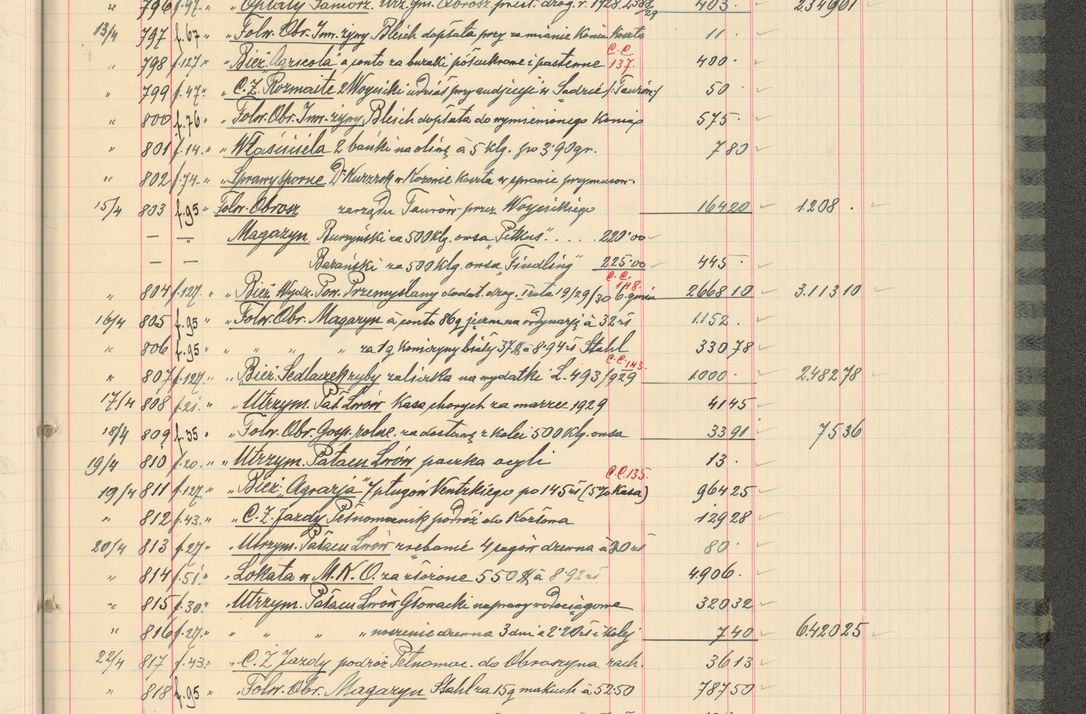 " 796 f.97. " Opłaty Samorz. Urz. gm. Obrosz prest. drog. r. 1928. 403. 234901
13/4 797 f.67 " Folw. Obr. Inw. żywy Blesch dopłata przy zamianie konia Koszta 11.
" 798 f.127 " Bież. "Agricola" a conto za buraki półcukrowe i pastewne C.C. 137. 400.
" 799 f.47 " C.Z. Rozmaite Wojcicki w Sądzie (Taurów) 50.
" 800 f.76 " Folw. Obr. Inw. żywy, Blesch dopłata do wymienionego konia 575.
" 801 f.14. " Właściciela 2 bańki na oliwę à 5 klg. po 3.90 gr. 780
" 802 f.74. " Sprawy sporne Dr. w koszta w sprawie
15/4 803 f.95 " Folw. Obrosz zarządu Taurów przez Wojcickiego 16420 1208.
— — Magazyn Burzyński za 500 klg. owsa "Petkus" .... 220.00
— — Barański za 500 klg. owsa "Findling" 225.00 445.
" 804 f.127. " Bież. Wydz. Pow. Przemyślany dodat. drog. 19/29/30 6. gmin C.C. 148. 266810 311310
16/4 805 f.95 " Folw. Obr. Magazyn à conto 86 q jęczm. na ordynarję à 32 zł 1152.
" 806 f.95 " " " " " za 1 q koniczyny białej 37 $ à 8.94 zł Stahl 33078
" 807 f.127. " Bież. Sedlaczek ryby zaliczka na wydatki L. 493/929 C.C. 143. 1000. 248278
17/4 808 f.21. " Utrzym. Pał. Lwów Kasa chorych za marzec 1929 4145
18/4 809 f.35 " Folw. Obr. Gosp. rolne. za dostawę z kolei 500 klg. owsa 3391 7536
19/4 810 f.20. " Utrzym. Pałacu Lwów paczka 13.
19/4 811 f.127 " Bież. "Agrarja" 7 pługów Ventzkiego po 145 zł (5% Kasa) C.C. 135. 96425
" 812 f.43. " C.Z. Jazdy Pełnomocnik podróż do 12928
20/4 813 f.27 " Utrzym. Pałacu Lwów zrąbanie 4 sągów drzewa à 20 zł 80.
" 814 f.51. " Lokata w M.K.O. za złożone 550 $ à 8.92 zł 4906.
" 815 f.30. " Utrzym. Pałacu Lwów Głowacki naprawy wodociągowe 32032
" 816 f.27. " " " " " noszenie drzewa 3 dni à 740 642025
22/4 817 f.43. " C.Z. Jazdy podróż Pełnomoc. do Obroszyna rach. 3613
" 818 f.95 " Folw. Obr. Magazyn Stahl za 15 q makuch à 52.50 78750